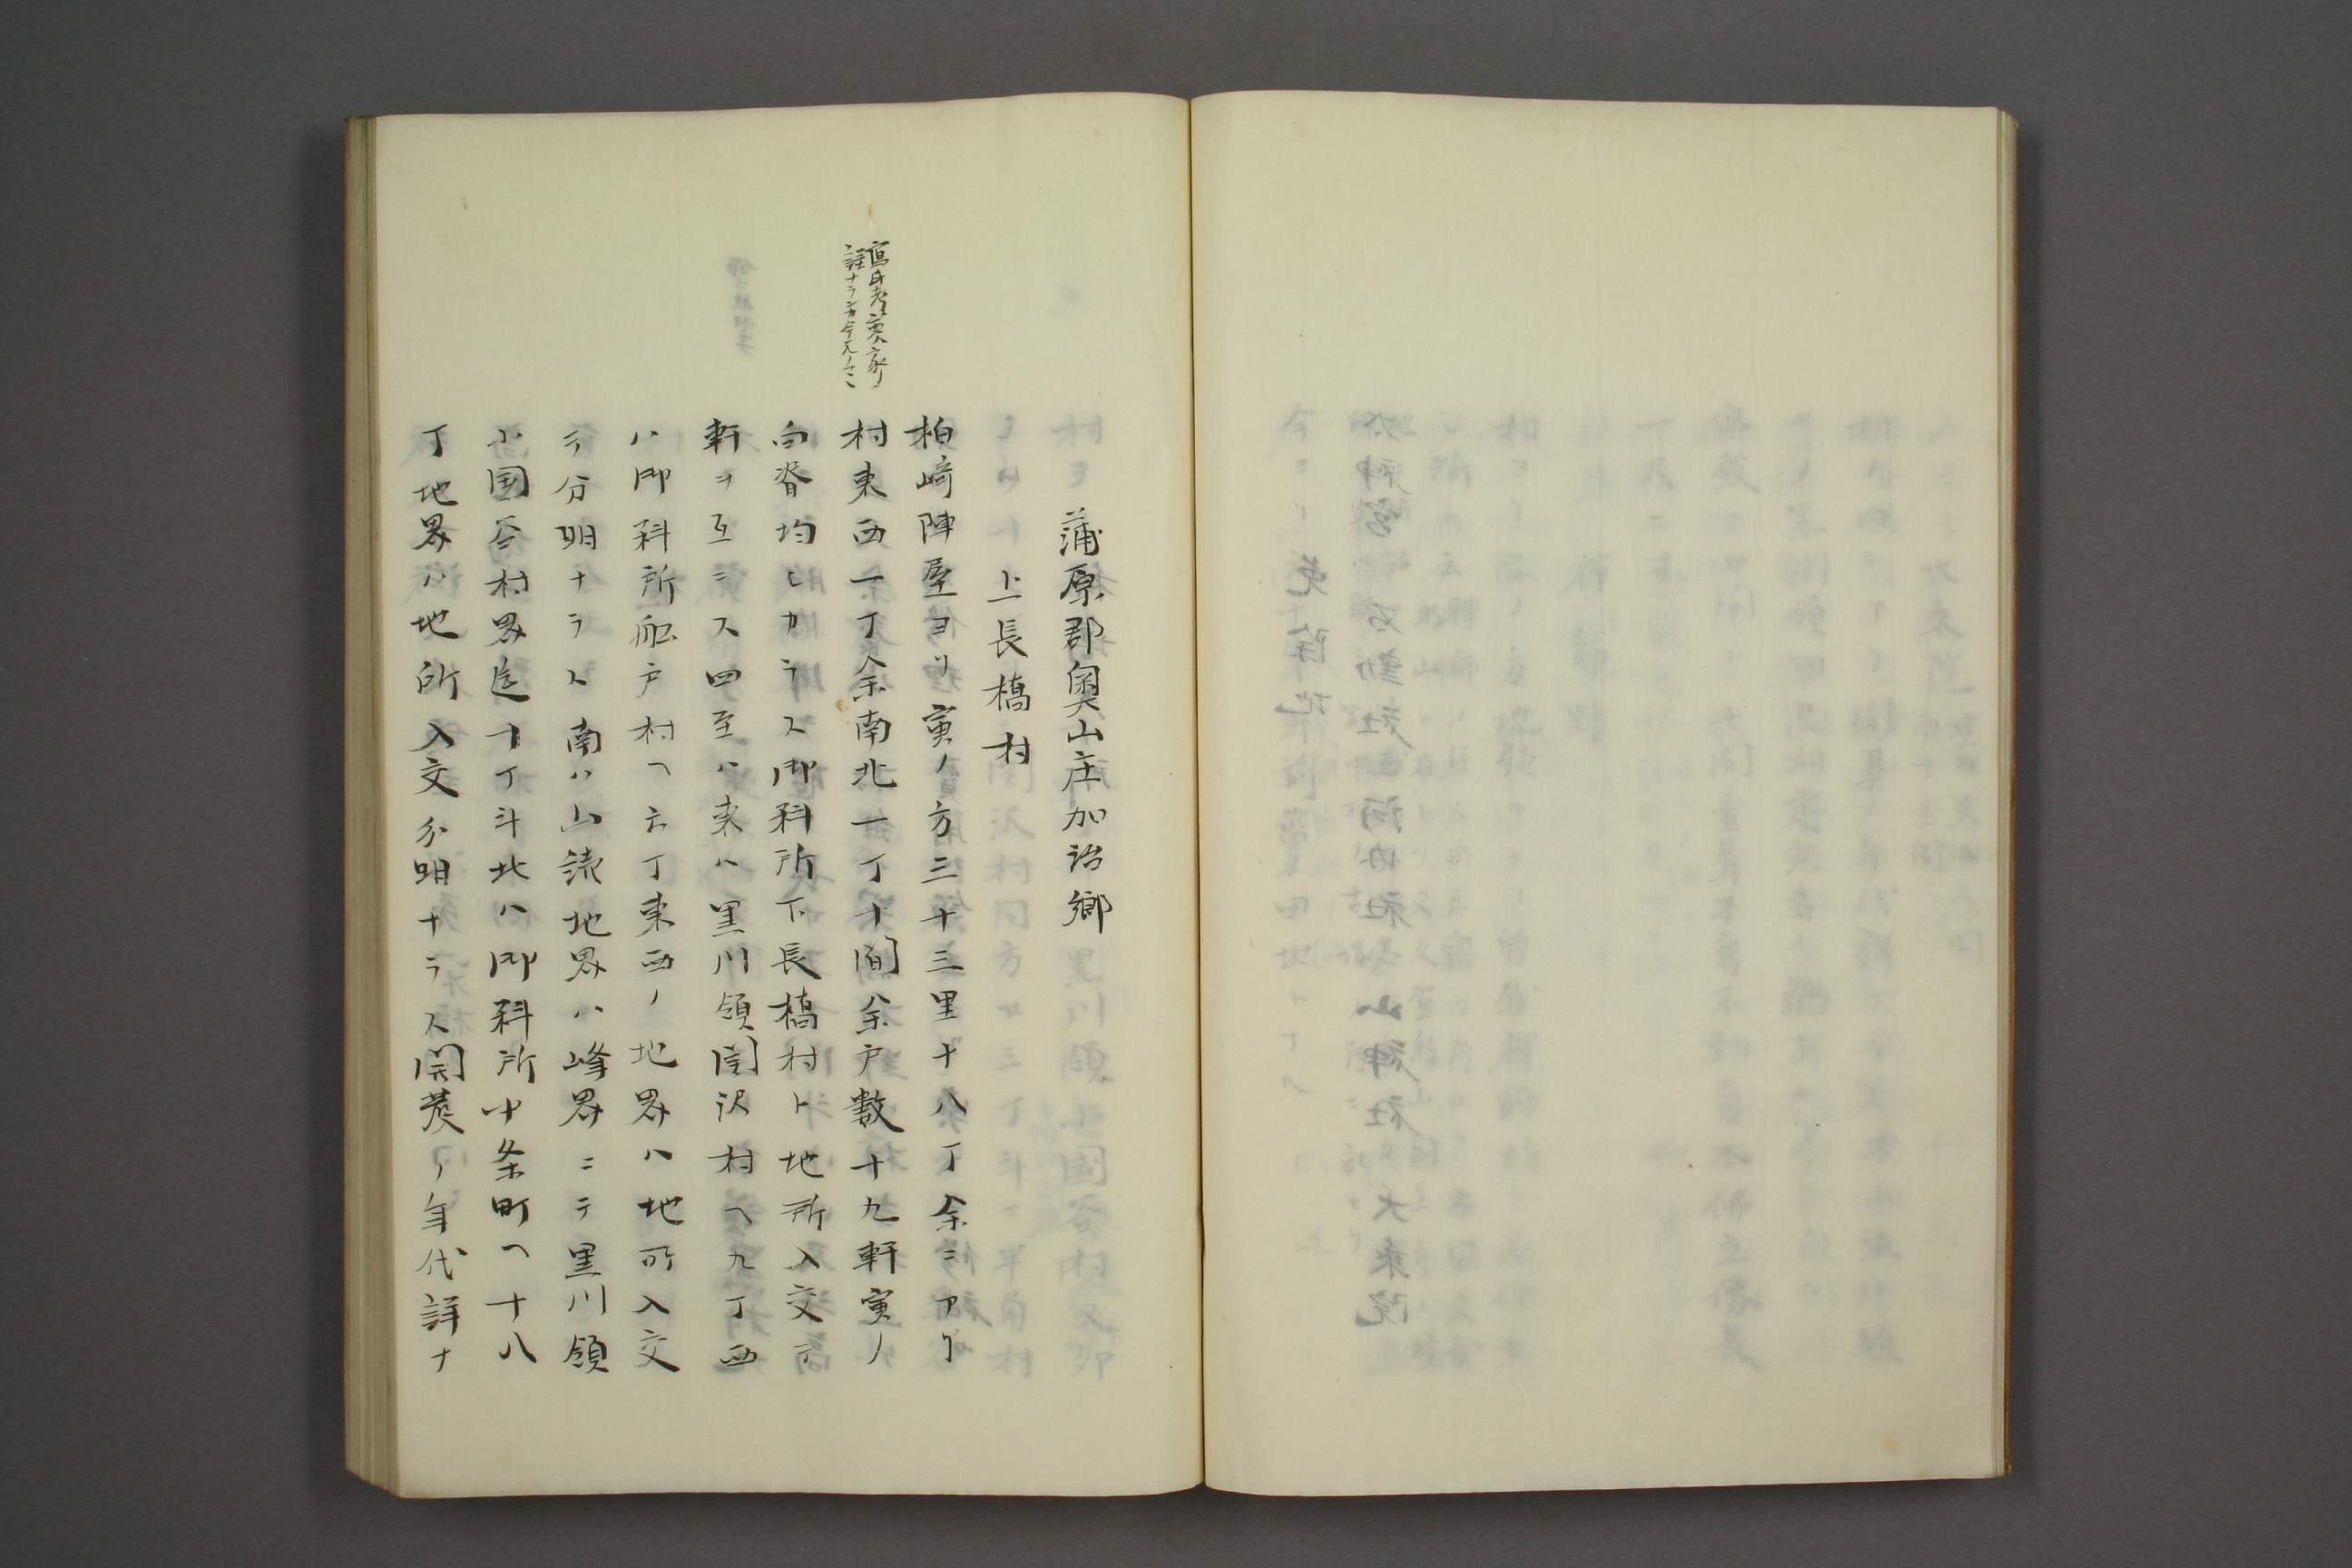 蒲原郡奥山庄加治郷
上長橋村
柏崎陣屋ヨリ寅ノ方三十三里十八丁余ニアリ
村東西一丁余南北一丁十間余戸数十九軒寅ノ
向脊均シカラス御料所下長橋村ト地所入交テ
軒ヲ互ニス四至ハ東ハ黒川領関沢村ヘ九丁西
ハ御料所舩戸村ヘ六丁東西ノ地界ハ地所入交
テ分明ナラス南ハ山続地界ハ峰界ニテ黒川領
小国谷村界迄十丁斗北ハ御料所中条町ヘ十八
丁地界ハ地所入交分明ナラス開発ノ年代詳ナ